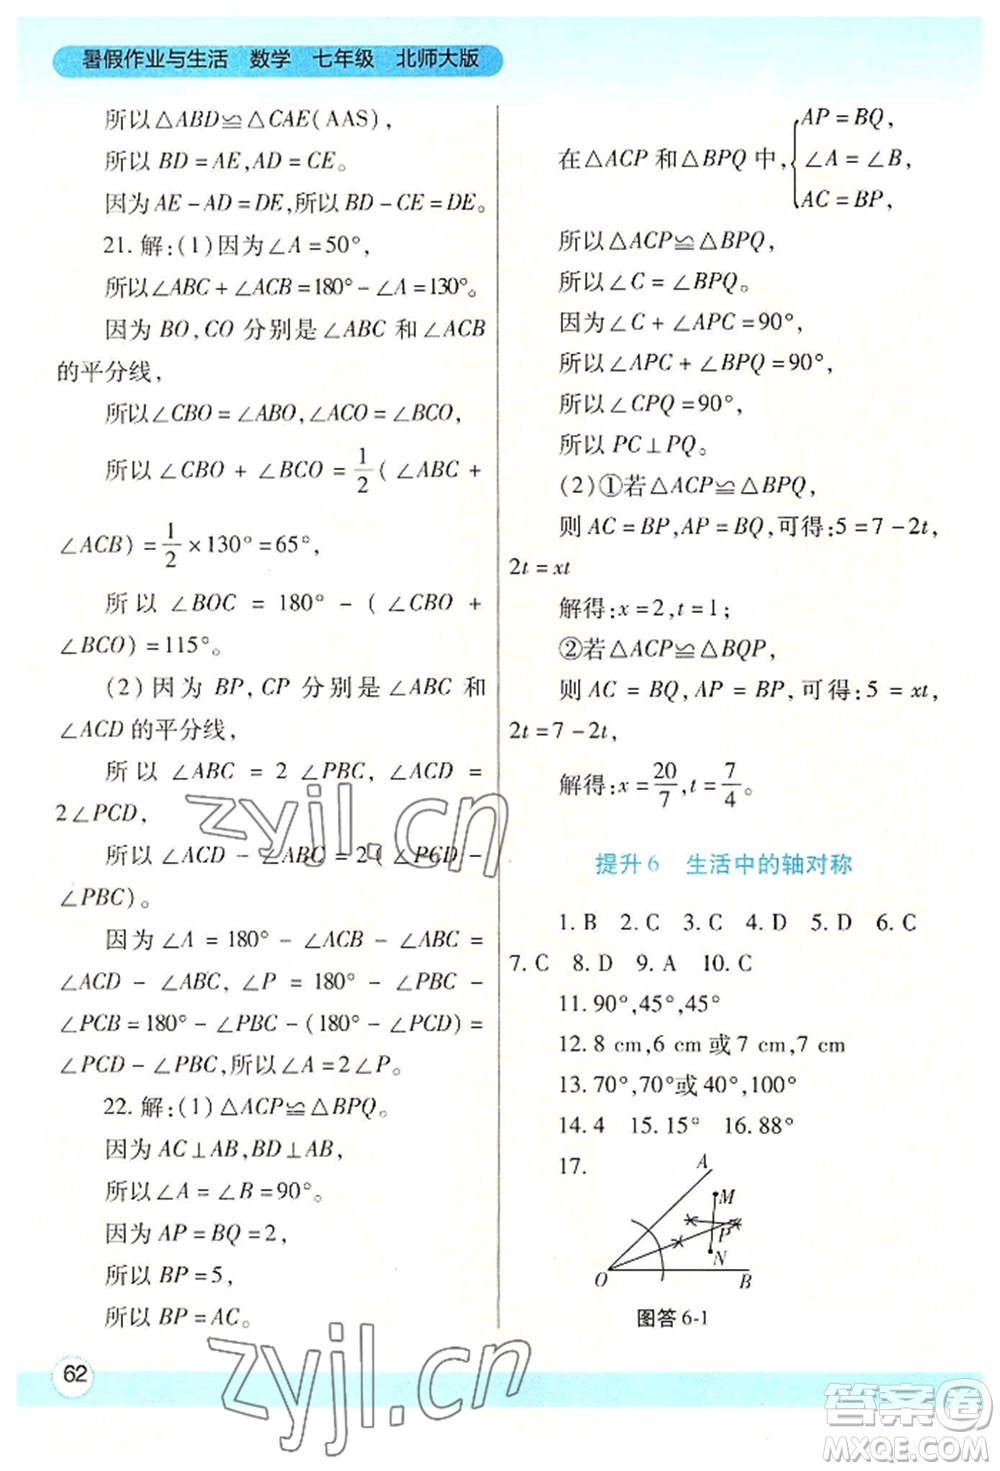 暑假作业与生活 数学 七年级 北师大版
所以△ABD≌△CAE(AAS),
所以 BD=AE,AD=CE。
因为 AE-AD=DE,所以 BD-CE=DE。
21. 解:(1)因为∠A=50°,
所以∠ABC+∠ACB=180°-∠A=130°。
因为 BO,CO 分别是∠ABC 和∠ACB
的平分线,
所以∠CBO=∠ABO,∠ACO=∠BCO,
所以∠CBO+∠BCO=1/2(∠ABC+
∠ACB)=1/2×130°=65°,
所以∠BOC=180°-(∠CBO+
∠BCO)=115°。
(2)因为 BP,CP 分别是∠ABC 和
∠ACD 的平分线,
所以∠ABC=2∠PBC,∠ACD=
2∠PCD,
所以∠ACD-∠ABC=2(∠PCD-
∠PBC)。
因为∠A=180°-∠ACB-∠ABC=
∠ACD-∠ABC,∠P=180°-∠PBC-
∠PCB=180°-∠PBC-(180°-∠PCD)=
∠PCD-∠PBC,所以∠A=2∠P。
22. 解:(1)△ACP≌△BPQ。
因为 AC⊥AB,BD⊥AB,
所以∠A=∠B=90°。
因为 AP=BQ=2,
所以 BP=5,
所以 BP=AC。
62
AP=BQ,
在△ACP 和△BPQ 中,{∠A=∠B,
AC=BP,
所以△ACP≌△BPQ,
所以∠C=∠BPQ。
因为∠C+∠APC=90°,
所以∠APC+∠BPQ=90°,
所以∠CPQ=90°,
所以 PC⊥PQ。
(2)①若△ACP≌△BPQ,
则 AC=BP,AP=BQ,可得:5=7-2t,
2t=xt
解得:x=2,t=1;
②若△ACP≌△BQP,
则 AC=BQ,AP=BP,可得:5=xt,
2t=7-2t,
解得:x=20/7,t=7/4。
提升6 生活中的轴对称
1. B 2. C 3. C 4. D 5. D 6. C
7. C 8. D 9. A 10. C
11. 90°,45°,45°
12. 8 cm,6 cm 或 7 cm,7 cm
13. 70°,70°或 40°,100°
14. 4 15. 15° 16. 88°
17.
A
M
P
N
O
B
图答 6-1
zyjl.cn
zyjl.cn
答案圈
MXQE.COM